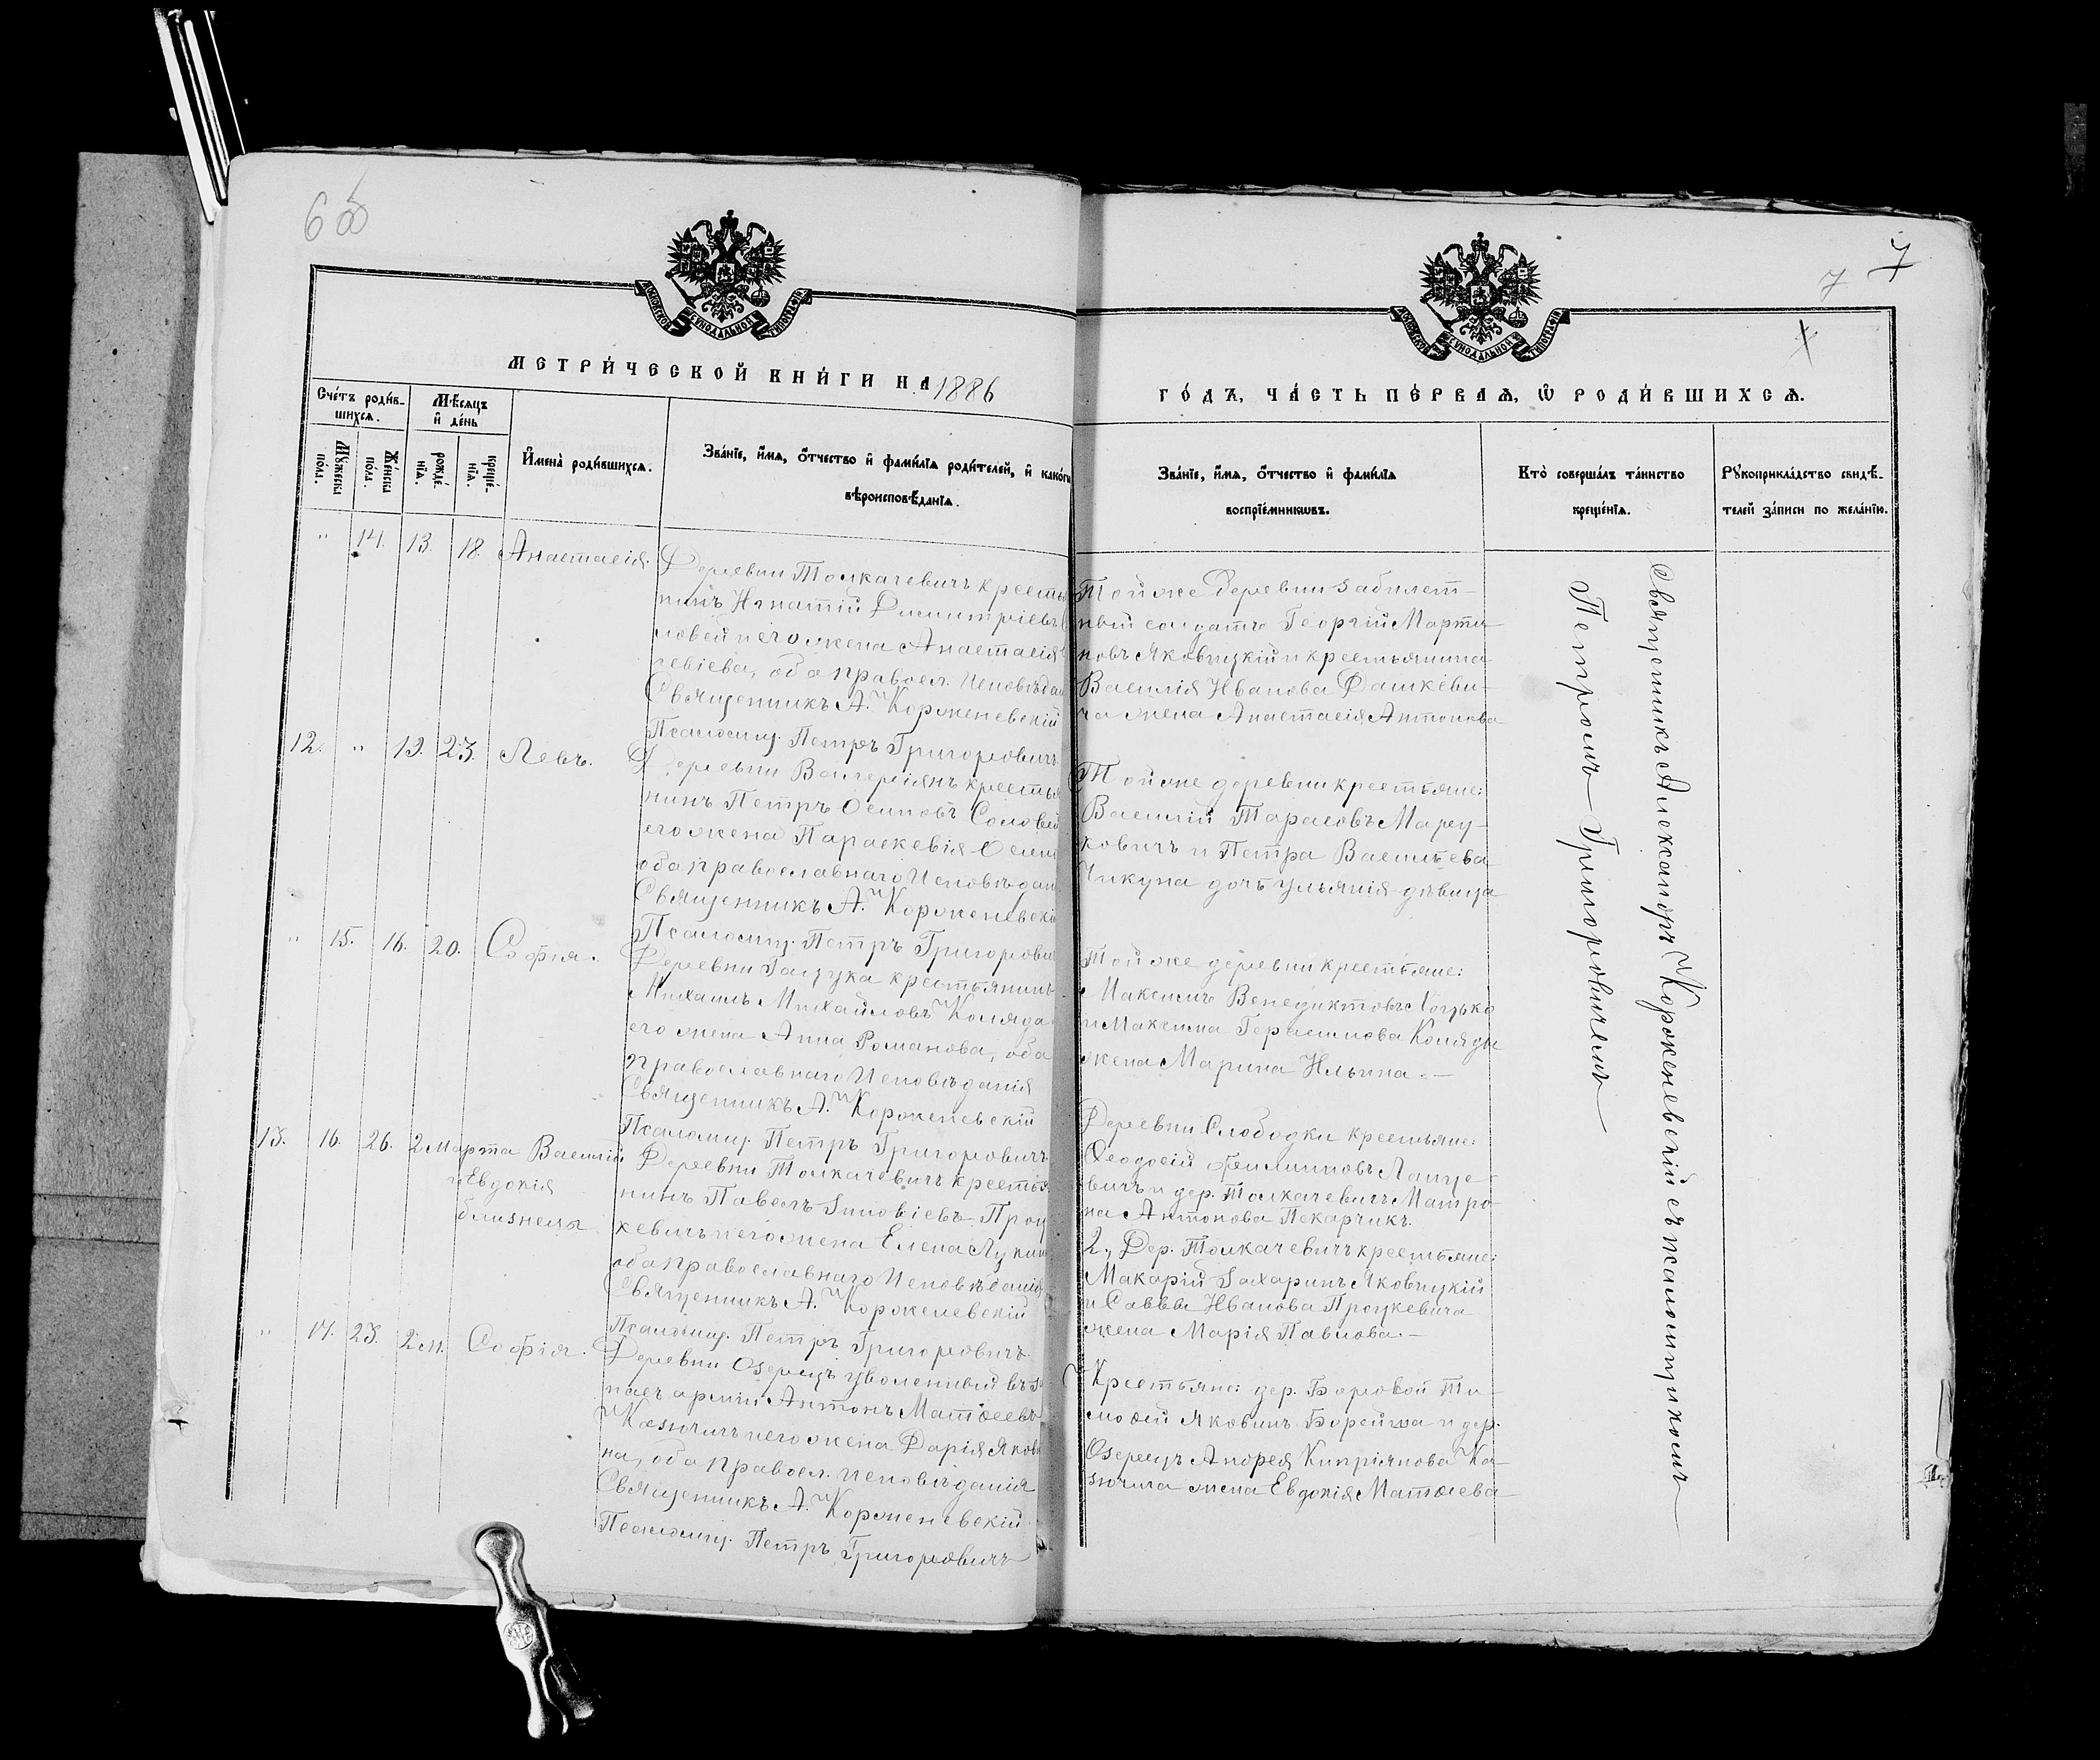 6 об
7
7
МОСКОВСКОЙ СѴНОДАЛЬНОЙ ТИПОГРАФІИ
МОСКОВСКОЙ СѴНОДАЛЬНОЙ ТИПОГРАФІИ
МЕТРИ́ЧЕСКОЙ КНИ́ГИ НА 1886
ГО́ДЪ, ЧА́СТЬ ПЕ́РВАѦ, Ѿ РОДИ́ВШИХСѦ.
Сче́тъ роди́в-
шихсѧ.
Мѣ́сѧцъ
и де́нь
Мꙋ́жеска
по́ла.
Же́нска
по́ла.
рожде́-
нїѧ.
креще́-
нїѧ.
Имена̀ роди́вшихсѧ.
Зва́нїе, и́мѧ, ѻ́тчество и фами́лїѧ роди́телей, и како́гѡ
вѣроисповѣ́данїѧ.
Зва́нїе, и́мѧ, ѻ́тчество и фами́лїѧ
воспрїе́мникѡвъ.
Кто̀ соверша́лъ та́инство
креще́нїѧ.
Рꙋкоприкла́дство свидѣ́-
телей за́писи по жела́нїю.
" 14. 13. 18. Анастасія.
Деревни Толкачевичъ кресть
нинъ Игнатій Димитріевъ
ловей и его жена Анастасія
севіева, оба правосл. исповѣдан
Священникъ А. Корженевскій
Псаломщ. Петръ Григоровичъ
Той же деревни забилет-
ный солдатъ Георгій Марти-
новъ Яковицкій и крестьянина
Василія Иванова Дашкеви-
ча жена Анастасія Антонова
12. " 19. 23. Левъ.
Деревни Валеріянъ крестья
нинъ Петръ Осиповъ Соловей
его жена Параскевія Осип
оба православнаго исповѣдан
Священникъ А. Корженевскій
Псаломщ. Петръ Григорови
Той же деревни крестьяне:
Василій Тарасовъ Марцу-
ковичъ и Петра Васильева
Чикуна дочь Ульянія девица
" 15. 16. 20. Софія.
Деревни Гацука крестьянинъ
Михаилъ Михайловъ Коляда
его жена Анна Романова, оба
православнаго исповѣданія
Священникъ А. Корженевскій
Псаломщ. Петръ Григоровичъ
Той же деревни крестьяне:
Максимъ Венедиктовъ
и Максима Герасимова Коляды
жена Марина Ильина.—
13. 16. 26. 2 Марта Василій
и Евдокія
близнецы
Деревни Толкачевичъ крестья
нинъ Павелъ Зиновіевъ Проц
кевичъ и его жена Елена Луки
оба православнаго исповѣданія
Священникъ А. Корженевскій
Псаломщ. Петръ Григоровичъ
Деревни Слободки крестьяне:
Ѳеодосій Филиповъ Лапце-
вичъ и дер. Толкачевичъ Матро-
на Антонова Пекарчикъ.
2., Дер. Толкачевичъ крестьяне:
Макарій Захаринъ Яковицкій
и Саввы Иванова Процкевича
жена Марія Павлова.—
" 17. 23. 2 м. Софія.
Деревни Озерецъ уволенный въ за
пасъ арміи Антонъ Матѳеевъ
Казючиъ и его жена Дарія Яковл
на, оба правосл. исповѣданія
Священникъ А. Корженевскій
Псаломщ. Петръ Григоровичъ
Крестьяне: дер. Боровой Ти-
моѳей Яковинъ Борейша и дер.
Озерецъ Андрея Кипріянова Ка-
зючица жена Евдокія Матѳеева
Священникъ Александръ Корженевскій съ псаломщикомъ
Петромъ Григоровичемъ